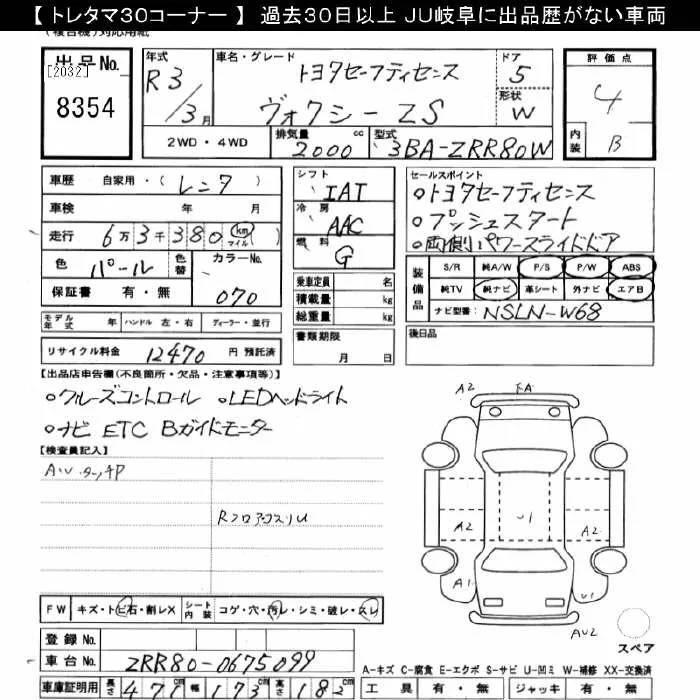 【 トレタマ30コーナー 】 過去30日以上 JU岐阜に出品歴がない車両
(複合機)対応用紙
出品No. [2032] 8354
年式 R3/3月
車名・グレード トヨタセーフティセンス
ヴォクシー ZS
ドア 5
形状 W
評価点 4
内装 B
2WD・4WD 排気量 2000 cc 型式 3BA-ZRR80W
車歴 自家用・(レンタ)
車検 年 月
走行 6万3千380 km マイル
色 パール 色替 カラーNo. 070
保証書 有・無
シフト IAT
冷房 AAC
燃料 G
乗車定員 名
積載量 kg
総重量 kg
セールスポイント
○トヨタセーフティセンス
○プッシュスタート
○両側パワースライドドア
装備品 S/R 純A/W P/S P/W ABS
純TV 純ナビ 革シート 外ナビ エアB
ナビ型番: NSLN-W68
モデル年式 年 ハンドル 左・右 ディーラー・並行
書類期限 月 日
後日品
リサイクル料金 12470 円 預託済
【出品店申告欄(不良箇所・欠品・注意事項等)】
○クルーズコントロール ○LEDヘッドライト
○ナビ ETC Bガイドモニター
【検査員記入】
RフロアコスリU
A2 A2
A2 U1 A2
A1 U1
AU2
スペア
FW キズ・トビ石・割レX シート内装 コゲ・穴・汚レ・シミ・破レ・スレ
登録No.
車台No. ZRR80-0675099
A-キズ C-腐食 E-エクボ S-サビ U-凹ミ W-補修 XX-交換済
車庫証明用 長さ 471cm 幅 173cm 高さ 182cm
工具 有・無 ジャッキ 有・無